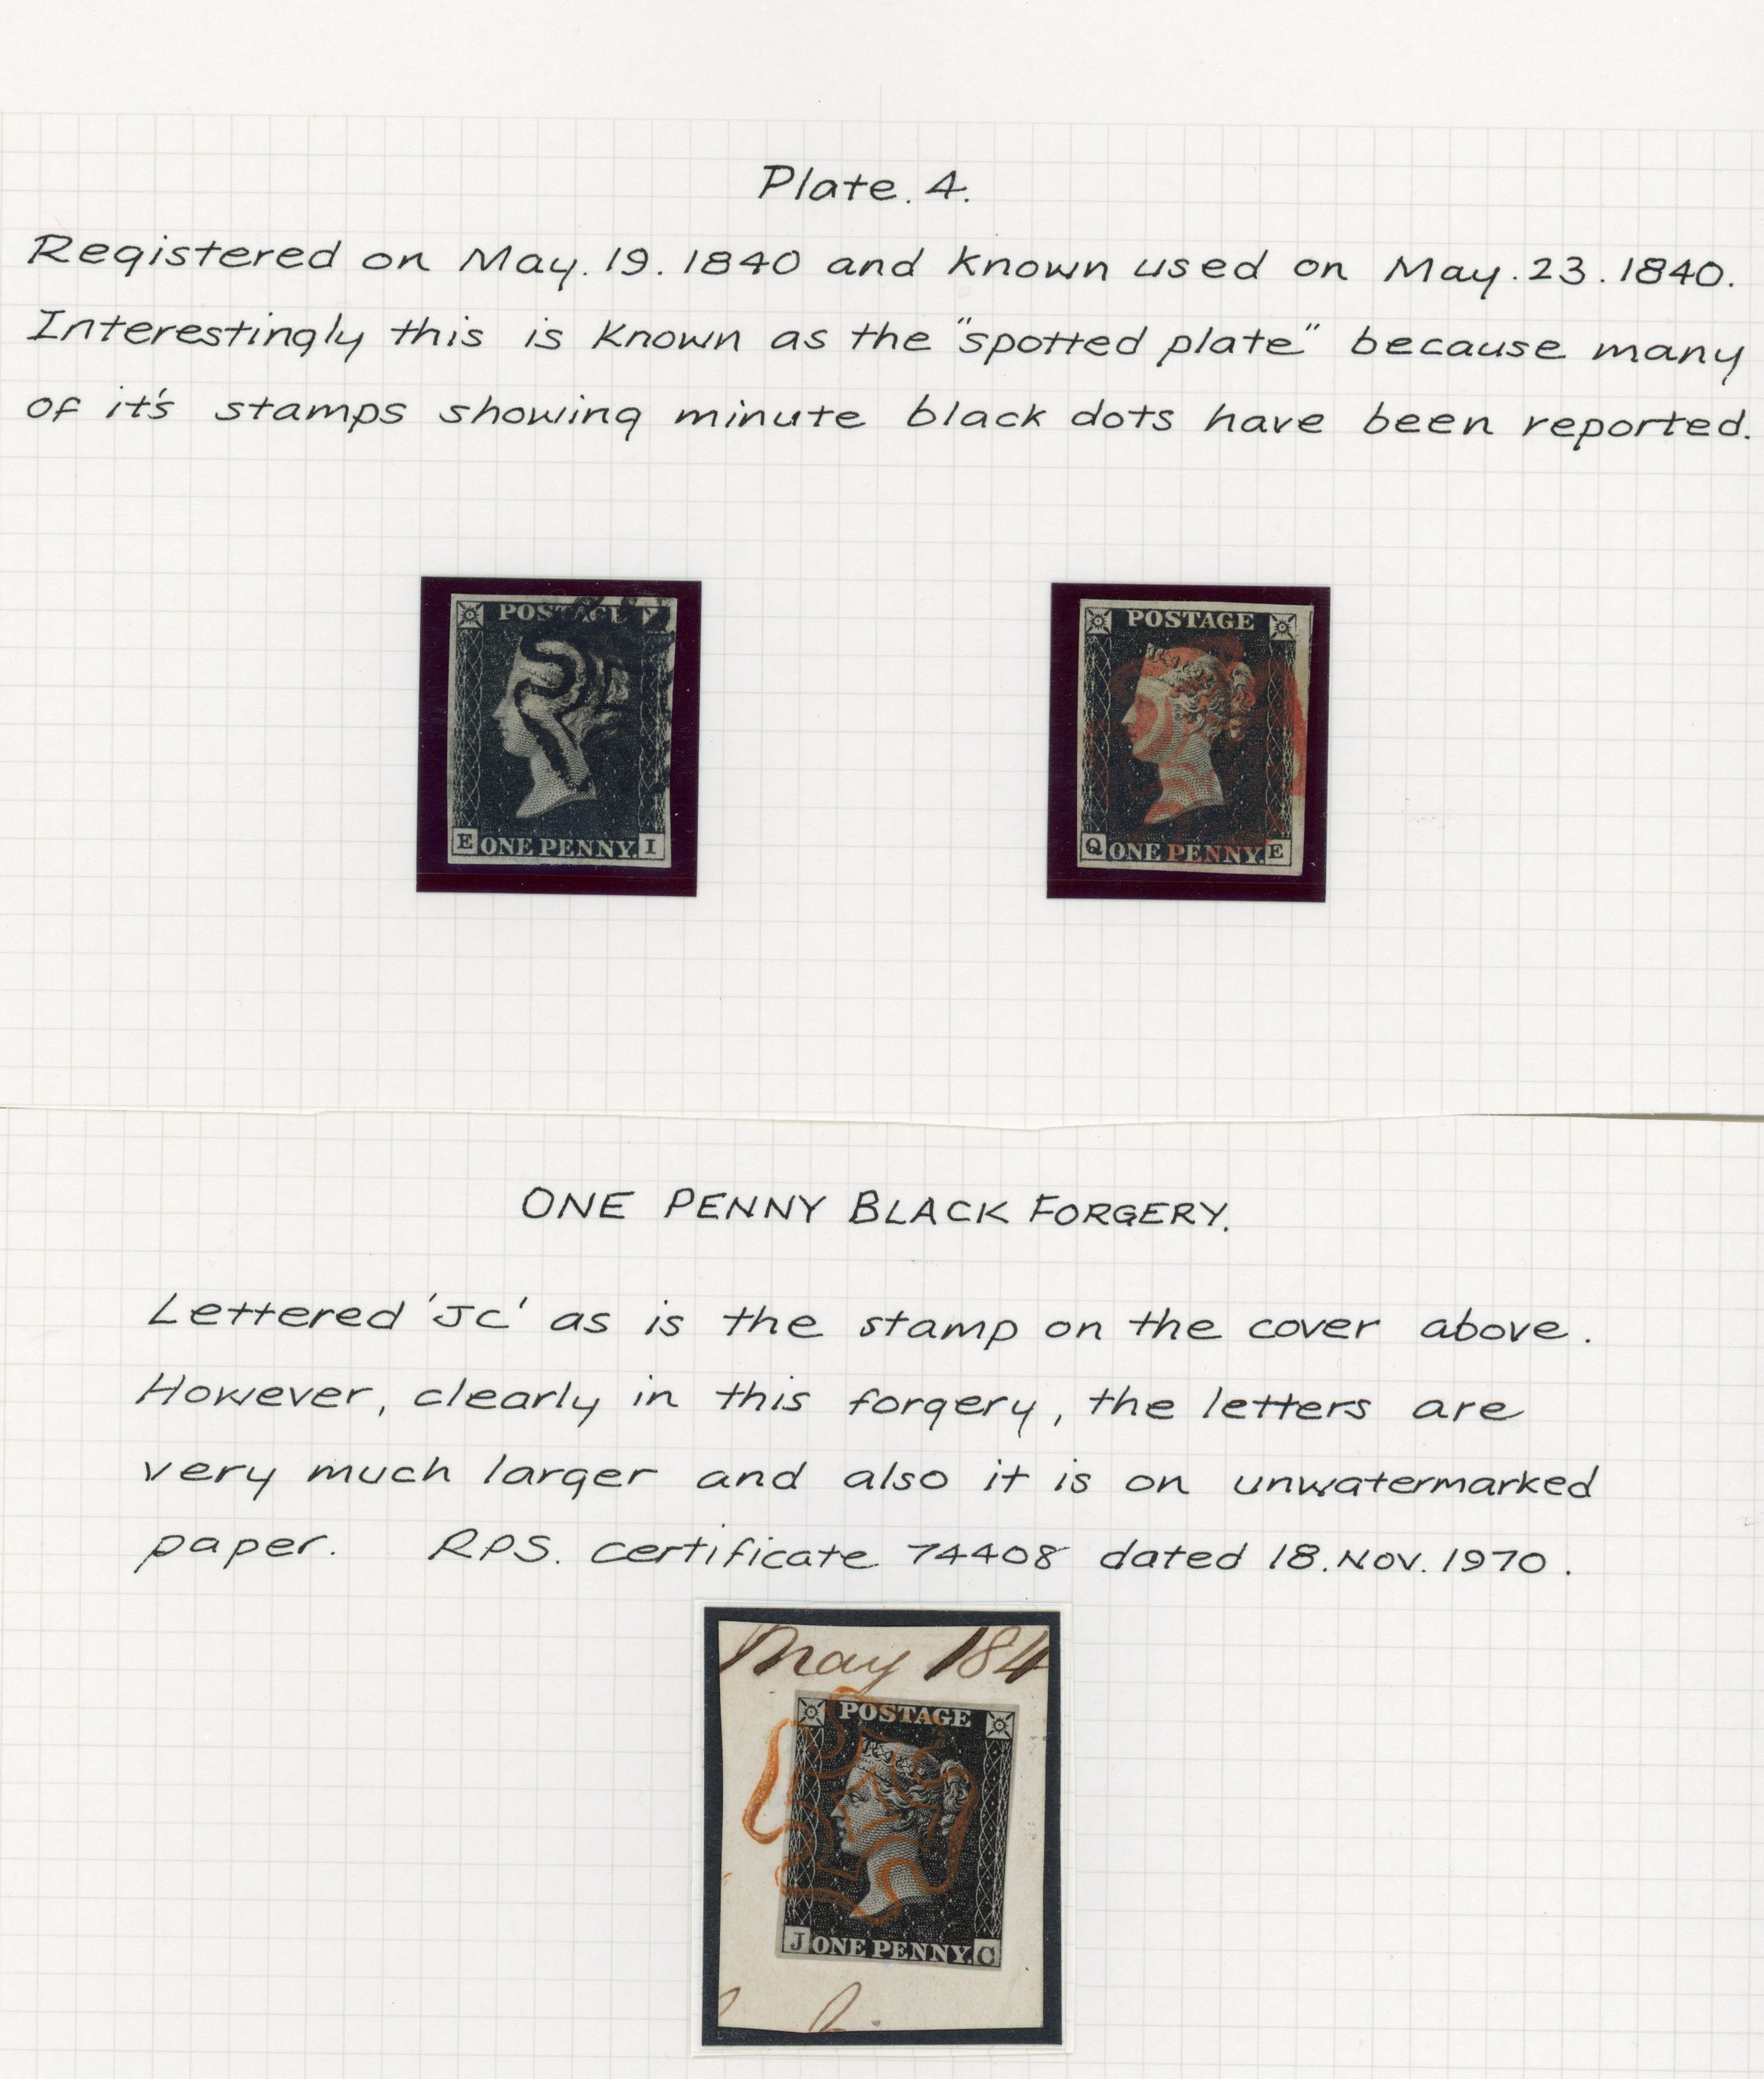 Plate. 4.
Registered on May. 19. 1840 and known used on May. 23. 1840.
Interestingly this is known as the "spotted plate" because many
of it's stamps showing minute black dots have been reported.
POSTAGE
E ONE PENNY. I
POSTAGE
Q ONE PENNY. E
ONE PENNY BLACK FORGERY.
Lettered 'JC' as is the stamp on the cover above.
However, clearly in this forgery, the letters are
very much larger and also it is on unwatermarked
paper. RPS. certificate 74408 dated 18. Nov. 1970.
May 184
POSTAGE
J ONE PENNY. C